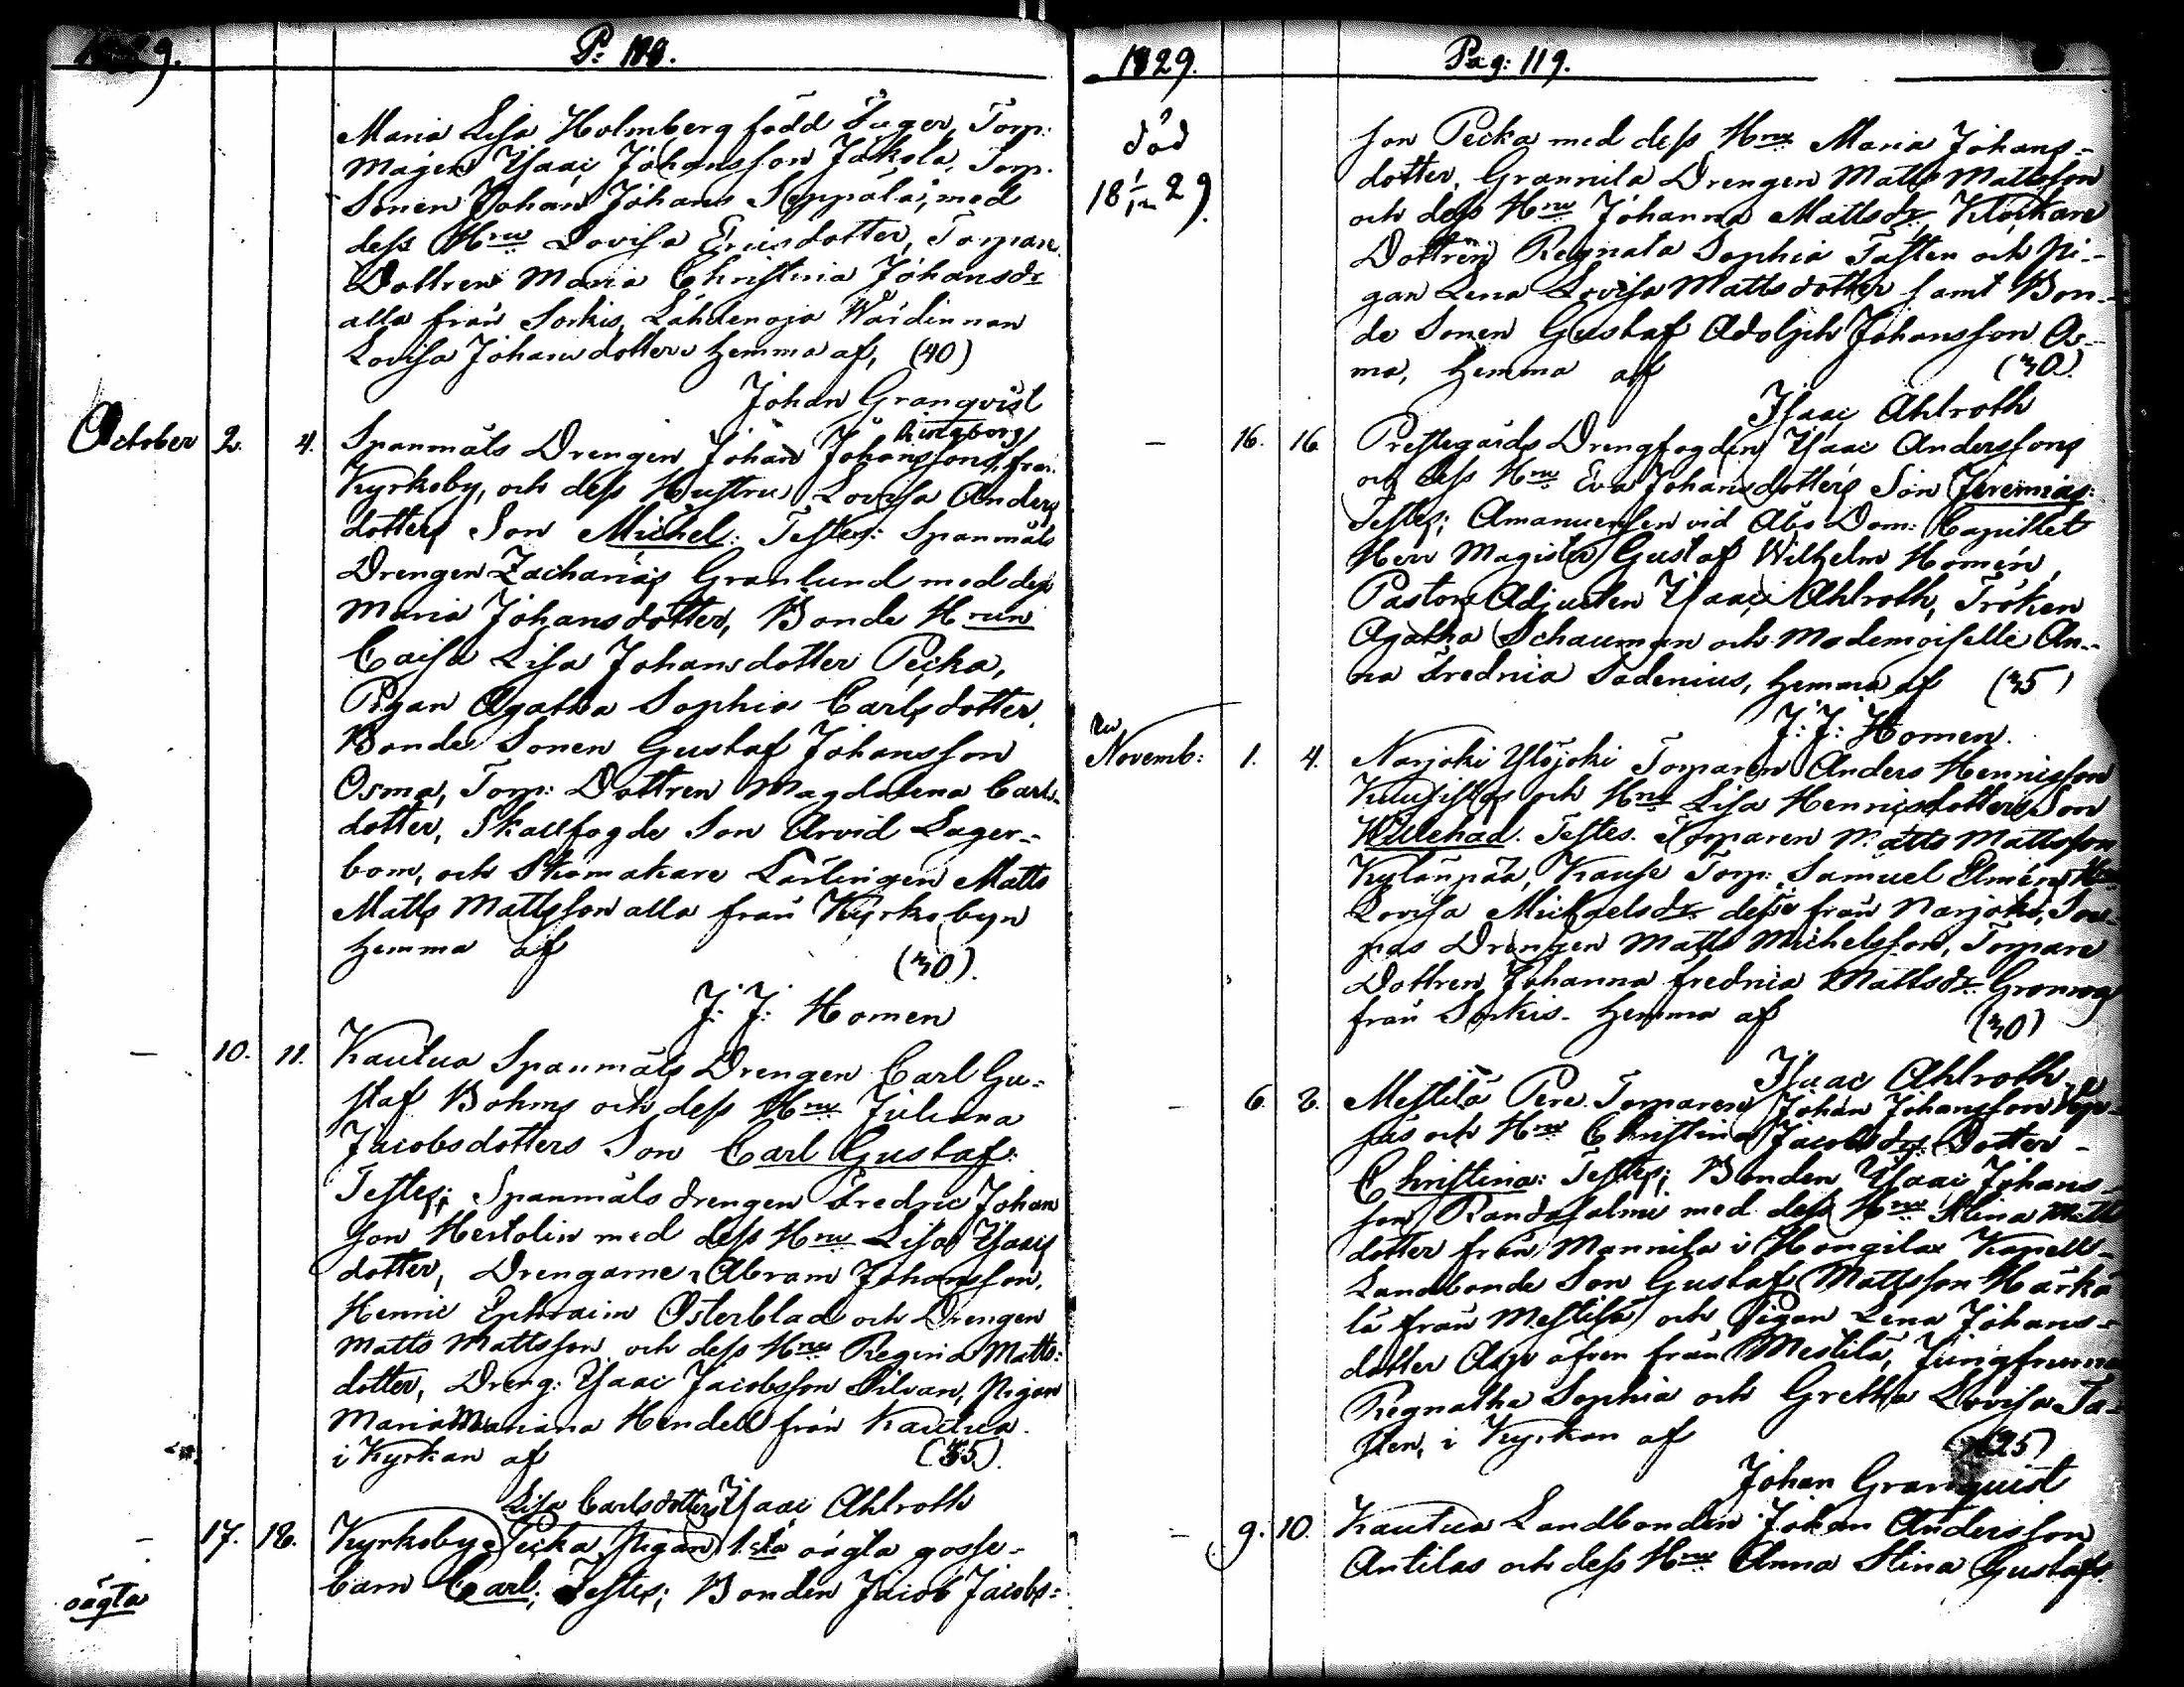 1829.
P: 118.
Maria Lisa Holmberg född Suger, Torp:
Majen Ysaac Johansson Jakola, Torp.
Sonen Johan Johans Seppälä, med
dess Hru Lovisa Ericsdotter, Torpare
Dottren Maria Christina Johansdr
alla från Sorkis, Lähdenoja Wärdinnan
Lovisa Johansdotter. Hemma af, (40)
Johan Granqvist
October 2. 4. Spanmåls Drengen Johan Johanssons, från
Ringborg
Kyrkoby, och dess Hustru Lovisa Anders
dotters Son Michel: Testes: Spanmåls
Drengen Zacharias Granlund med dess
Maria Johansdotter, Bonde Hrun
Caisa Lisa Johansdotter Pecka,
Pigan Agatha Sophia Carlsdotter,
Bonde Sonen Gustaf Johansson
Osma, Torp: Dottren Magdalena Carls-
dotter, Skallfogde Son Arvid Lager-
bom, och Skomakare Lärlingen Matts
Matts Mattsson alla från Kyrkobyn
Hemma af (30).
J: J: Homen
— 10. 11. Kautua Spanmåls Drengen Carl Gu-
staf Bohms och dess Hru Juliana
Jacobsdotters Son Carl Gustaf:
Testes; Spanmåls drengen Fredric Johan
son Hertolin med dess Hru Lisa Ysacs
dotter, Drengarne Abram Johansson,
Henric Ephraim Österblad och Drengen
Matts Mattsson och dess Hru Regina Matts:
dotter, Dreng: Ysaac Jacobsson Silvan, Pigan
Maria Mariana Hendell från Kautua.
i Kyrkan af (35).
Lisa Carlsdotters Ysaac Ahlroth
— 17. 18. Kyrkoby Pecka Pigan 1:sta oägta gosse-
oägta
barn Carl; Testes; Bonden Jacob Jacobs-
1829.
Pag: 119.
död
18 29.
son Pecka med dess Hru Maria Johans-
dotter, Grannila Drengen Matts Mattsson
och dess Hru Johanna Mattsdr, Klockare
Dottren Regnata Sophia Tasten och Pi-
gan Lena Lovisa Mattsdotter samt Bon-
de Sonen Gustaf Adolph Johansson Os-
ma, Hemma af (30).
Isaac Ahlroth
— 16. 16 Prestegårds Drengfogden Ysaac Anderssons
och dess Hru Eva Johansdotters Son Jeremias:
Testes; Amanuensen vid Åbo Dom: Capittet
Herr Magister Gustaf Wilhelm Homén,
Pastors Adjuncten Ysaac Ahlroth, Fröken
Agatha Schauman och Mademoiselle An-
na Fredrica Sadenius, Hemma af (35)
J: J: Homen.
Novemb: 1. 4. Narjoki Ylöjoki Torparen Anders Henricsson
Kuusistos och Hru Lisa Henricsdotters Son
Willehad. Testes. Torparen Matts Mattsson
Kylänpää, Krause Torp: Samuel Elmén,
Lovisa Michaelsdr. desse från Narjoki, Sou-
pas Drengen Matts Michelsson, Torpare
Dottren Johanna Fredrica Mattsdr. Gronroos
från Sorkis. Hemma af (30)
Isaac Ahlroth
— 6. 8. Mestilä Pere Torparen Johan Johansson
och Hru Christina Jacobsdrs. Dotter
Christina: Testes; Bonden Ysaac Johans-
son Randasalmi med dess Hru Stina Matts
dotter från Mannila i Hongilax Kapell-
Landbonde Son Gustaf Mattsson Härkä
lä från Mestilä och Pigan Lena Johans-
dotter Asp äfven från Mestilä, Jungfrurna
Regnatha Sophia och Gretha Lovisa Ta-
sten, i Kyrkan af (25)
Johan Granquist
— 9. 10. Kautua Landbonden Johan Andersson
Antilas och dess Hru Anna Stina Gustafs